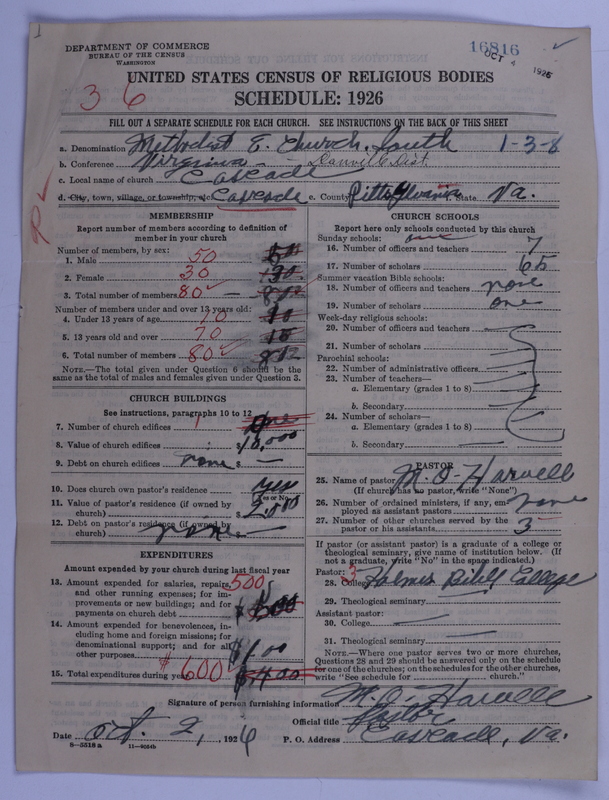 DEPARTMENT OF COMMERCE
BUREAU OF THE CENSUS
WASHINGTON
16816
OCT 4 1926
UNITED STATES CENSUS OF RELIGIOUS BODIES
36
SCHEDULE: 1926
FILL OUT A SEPARATE SCHEDULE FOR EACH CHURCH. SEE INSTRUCTIONS ON THE BACK OF THIS SHEET
a. Denomination Methodist E. Church, South 1-3-8
b. Conference Virginia - Danville Dist.
c. Local name of church Cascade
d. City, town, village, or township, etc. Cascade e. County Pittsylvania State Va.
MEMBERSHIP
Report number of members according to definition of member in your church
Number of members, by sex:
1. Male 50
2. Female 30
3. Total number of members 80
Number of members under and over 13 years old:
4. Under 13 years of age 10
5. 13 years old and over 70
6. Total number of members 80
NOTE.—The total given under Question 6 should be the
same as the total of males and females given under Question 3.
CHURCH BUILDINGS
See instructions, paragraphs 10 to 12
7. Number of church edifices 1 One
8. Value of church edifices $10,000
9. Debt on church edifices none $ —
10. Does church own pastor's residence yes
(Yes or No)
11. Value of pastor's residence (if owned by
church) $2,500
12. Debt on pastor's residence (if owned by
church) none —
EXPENDITURES
Amount expended by your church during last fiscal year
13. Amount expended for salaries, repairs, 500
and other running expenses; for im-
provements or new buildings; and for
payments on church debt
14. Amount expended for benevolences, in-
cluding home and foreign missions; for
denominational support; and for all
other purposes $100
15. Total expenditures during year $600 $400
CHURCH SCHOOLS
Report here only schools conducted by this church
Sunday schools: one
16. Number of officers and teachers 7
17. Number of scholars 65
Summer vacation Bible schools:
18. Number of officers and teachers none
19. Number of scholars one
Week-day religious schools:
20. Number of officers and teachers
21. Number of scholars
Parochial schools:
22. Number of administrative officers
23. Number of teachers—
a. Elementary (grades 1 to 8)
b. Secondary
24. Number of scholars—
a. Elementary (grades 1 to 8)
b. Secondary
PASTOR
25. Name of pastor M. O. Harvell
(If church has no pastor, write "None")
26. Number of ordained ministers, if any, em-
ployed as assistant pastors none
27. Number of other churches served by the
pastor or his assistants 3
If pastor (or assistant pastor) is a graduate of a college or
theological seminary, give name of institution below. (If
not a graduate, write "No" in the space indicated.)
Pastor: 3
28. College Holmes Bible College
29. Theological seminary
Assistant pastor:
30. College
31. Theological seminary
NOTE.—Where one pastor serves two or more churches,
Questions 28 and 29 should be answered only on the schedule
for one of the churches; on the schedules for the other churches,
write "See schedule for church."
Signature of person furnishing information M. O. Harvell
Official title Pastor
Date Oct. 2, 1926 P. O. Address Cascade, Va.
8-5518 a 11-4064b